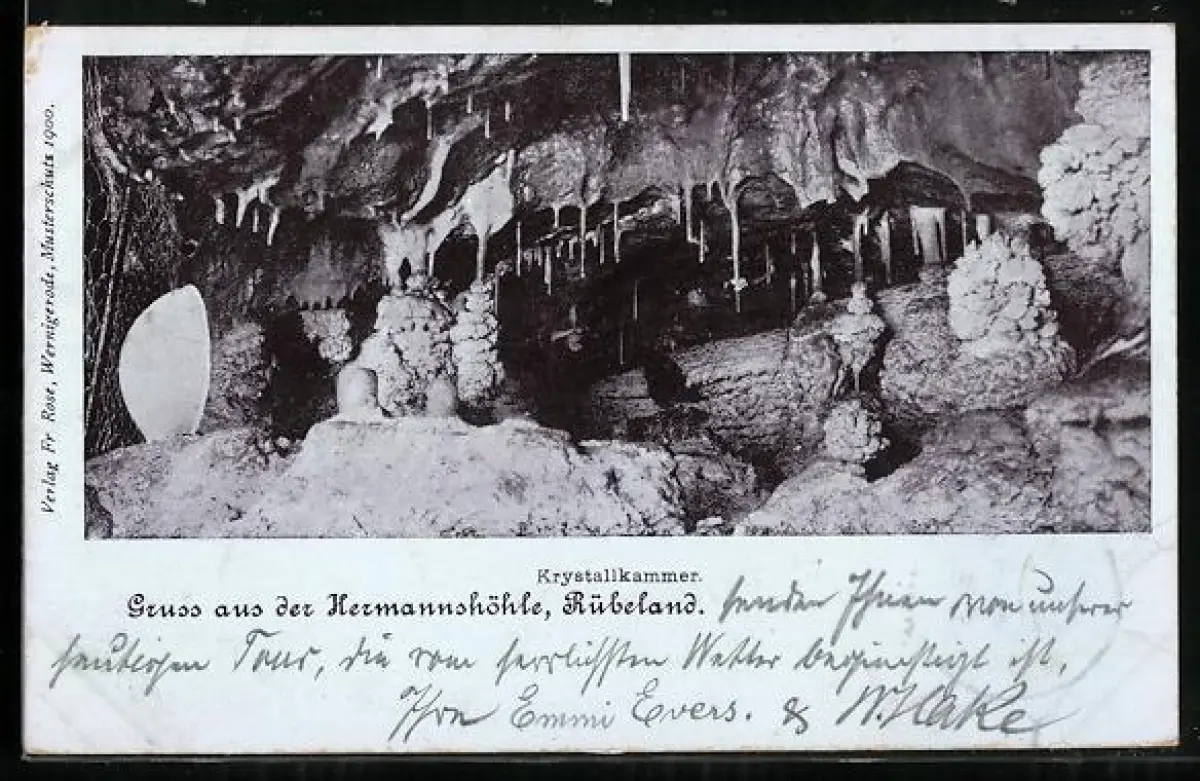 Verlag Fr Rose, Wernigerode, Musterschutz 1900.
Krystallkammer.
Gruss aus der Hermannshöhle, Rübeland. senden Ihnen von unserer
heutigen Tour, die vom herrlichsten Wetter begünstigt ist,
Ihre Emmi Evers. & W. Hake